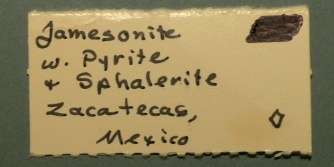 Jamesonite
w. Pyrite
+ Sphalerite
Zacatecas,
Mexico